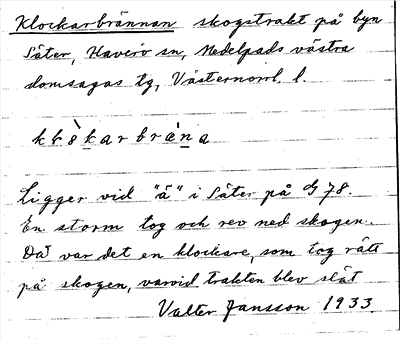 Klockarbrännan skogstrakt på byn
Säter, Haverö sn, Medelpads västra
domsagas tg, Västernorrl. l.
Ligger vid "å" i Säter på G 78.
En storm tog och rev ned skogen.
Då var det en klockare, som tog rätt
på skogen, varvid trakten blev slät
Valter Jansson 1933.